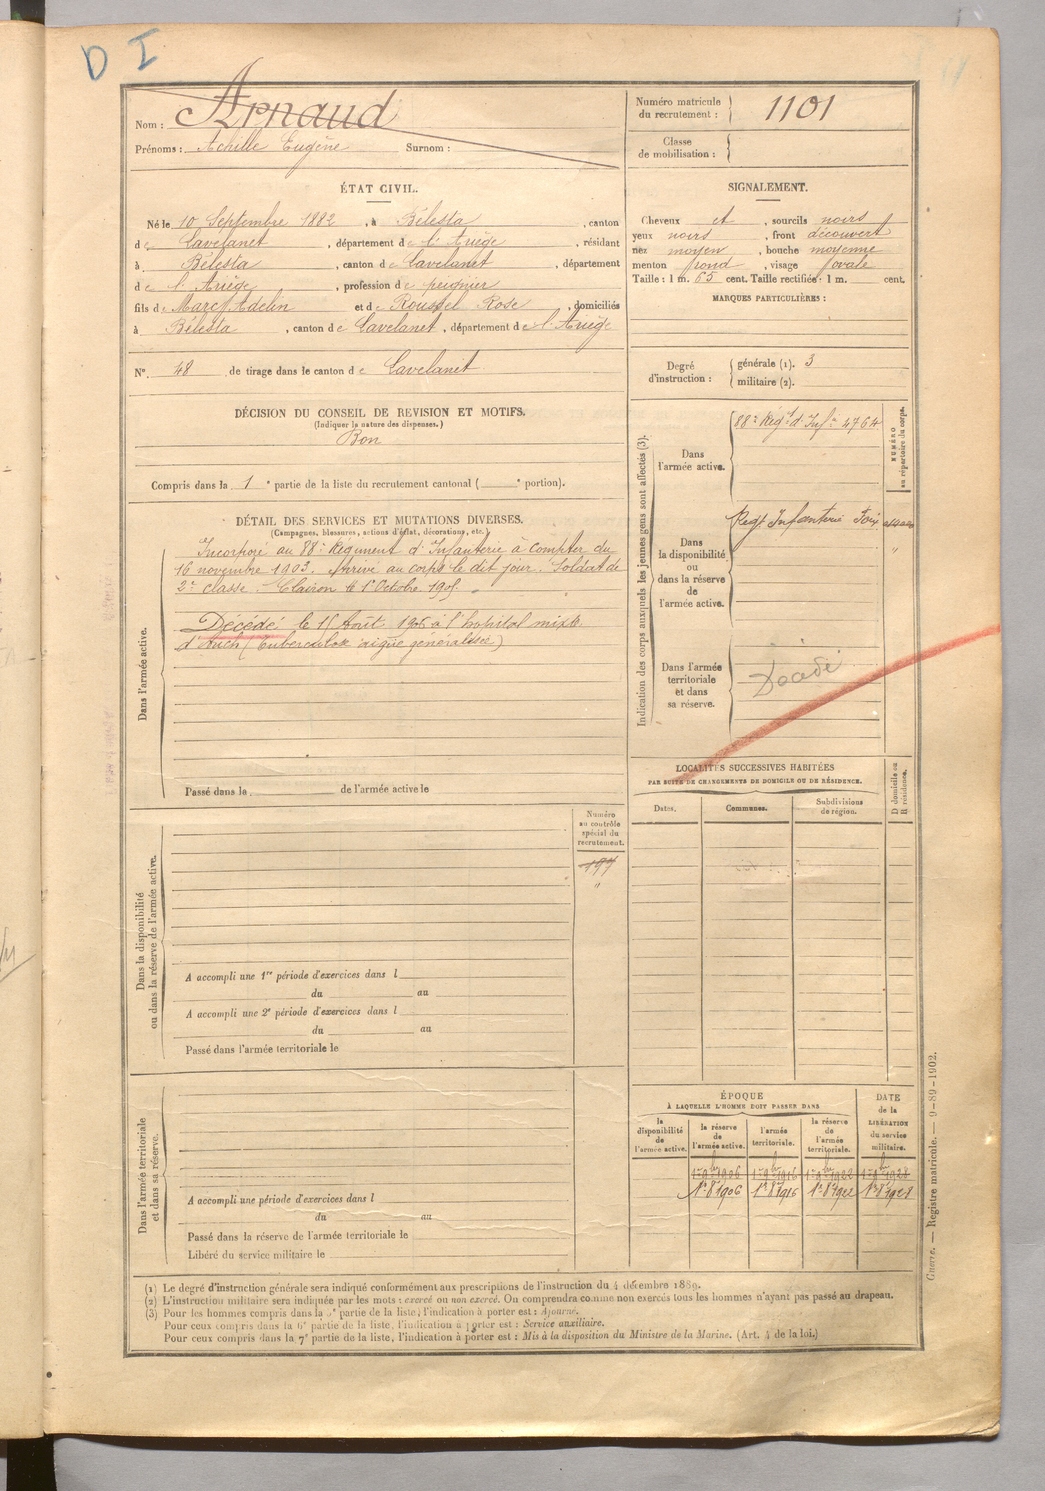 D I
Nom : Arnaud
Prénoms : Achille Eugène Surnom :
Numéro matricule
du recrutement : 1101
Classe
de mobilisation :
ÉTAT CIVIL.
Né le 10 Septembre 1882, à Bélesta, canton
de Lavelanet, département de l'Ariège, résidant
à Bélesta, canton de Lavelanet, département
de l'Ariège, profession de peignier
fils de Marc Adelin et de Roussel Rose, domiciliés
à Bélesta, canton de Lavelanet, département de l'Ariège
N° 48 de tirage dans le canton de Lavelanet
SIGNALEMENT.
Cheveux et, sourcils noirs
yeux noirs, front découvert
nez moyen, bouche moyenne
menton rond, visage ovale
Taille : 1 m. 65 cent. Taille rectifiée : 1 m. cent.
MARQUES PARTICULIÈRES :
Degré
d'instruction :
générale (1). 3
militaire (2).
DÉCISION DU CONSEIL DE REVISION ET MOTIFS.
(Indiquer la nature des dispenses.)
Bon
Compris dans la 1e partie de la liste du recrutement cantonal ( e portion).
DÉTAIL DES SERVICES ET MUTATIONS DIVERSES.
(Campagnes, blessures, actions d'éclat, décorations, etc.)
Dans l'armée active.
Incorporé au 88e Régiment d'Infanterie à compter du
16 novembre 1903. Arrivé au corps le dit jour. Soldat de
2e classe. Clairon le 1er Octobre 1905.
Décédé le 15 Août 1906 à l'hôpital mixte
d'Auch (Tuberculose aigüe généralisée)
Passé dans la de l'armée active le
Indication des corps auxquels les jeunes gens sont affectés (3).
NUMÉRO
au répertoire du corps.
Dans
l'armée active.
88e Régt d'Infie 4764
Dans
la disponibilité
ou
dans la réserve
de
l'armée active.
Regt Infanterie Foix
"
Dans l'armée
territoriale
et dans
sa réserve.
Décédé
LOCALITÉS SUCCESSIVES HABITÉES
PAR SUITE DE CHANGEMENTS DE DOMICILE OU DE RÉSIDENCE.
D domicile ou
R résidence.
Dates.
Communes.
Subdivisions
de région.
Dans la disponibilité
ou dans la réserve de l'armée active.
Numéro
au contrôle
spécial du
recrutement.
197
"
A accompli une 1re période d'exercices dans l
du au
A accompli une 2e période d'exercices dans l
du au
Passé dans l'armée territoriale le
Dans l'armée territoriale
et dans sa réserve.
A accompli une période d'exercices dans l
du au
Passé dans la réserve de l'armée territoriale le
Libéré du service militaire le
ÉPOQUE
À LAQUELLE L'HOMME DOIT PASSER DANS
la
disponibilité
de
l'armée active.
la réserve
de
l'armée active.
l'armée
territoriale.
la réserve
de
l'armée
territoriale.
DATE
de la
LIBÉRATION
du service
militaire.
1er 9bre 1906 1er 9bre 1916 1er 9bre 1922 1er 9bre 1928
1er 8bre 1906 1er 8bre 1916 1er 8bre 1922 1er 8bre 1928
Guerre. — Registre matricule. — 9-89-1902.
(1) Le degré d'instruction générale sera indiqué conformément aux prescriptions de l'instruction du 4 décembre 1889.
(2) L'instruction militaire sera indiquée par les mots : exercé ou non exercé. On comprendra comme non exercés tous les hommes n'ayant pas passé au drapeau.
(3) Pour les hommes compris dans la 5e partie de la liste, l'indication à porter est : Ajourné.
Pour ceux compris dans la 6e partie de la liste, l'indication à porter est : Service auxiliaire.
Pour ceux compris dans la 7e partie de la liste, l'indication à porter est : Mis à la disposition du Ministre de la Marine. (Art. 4 de la loi.)